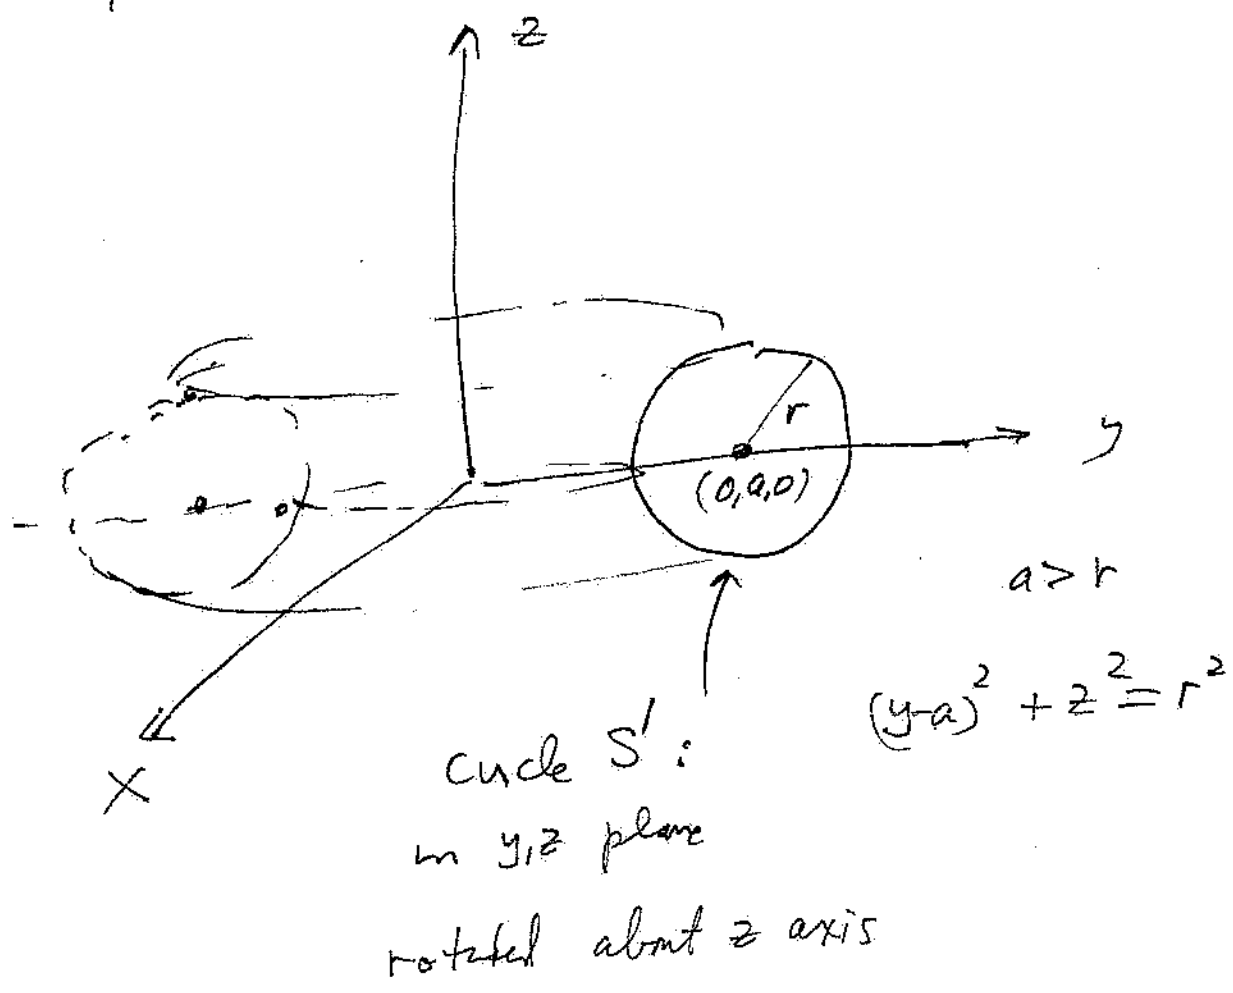 z
r
y
(0,a,0)
a>r
(y-a)² + z² = r²
x
Circle S':
in y,z plane
rotated about z axis